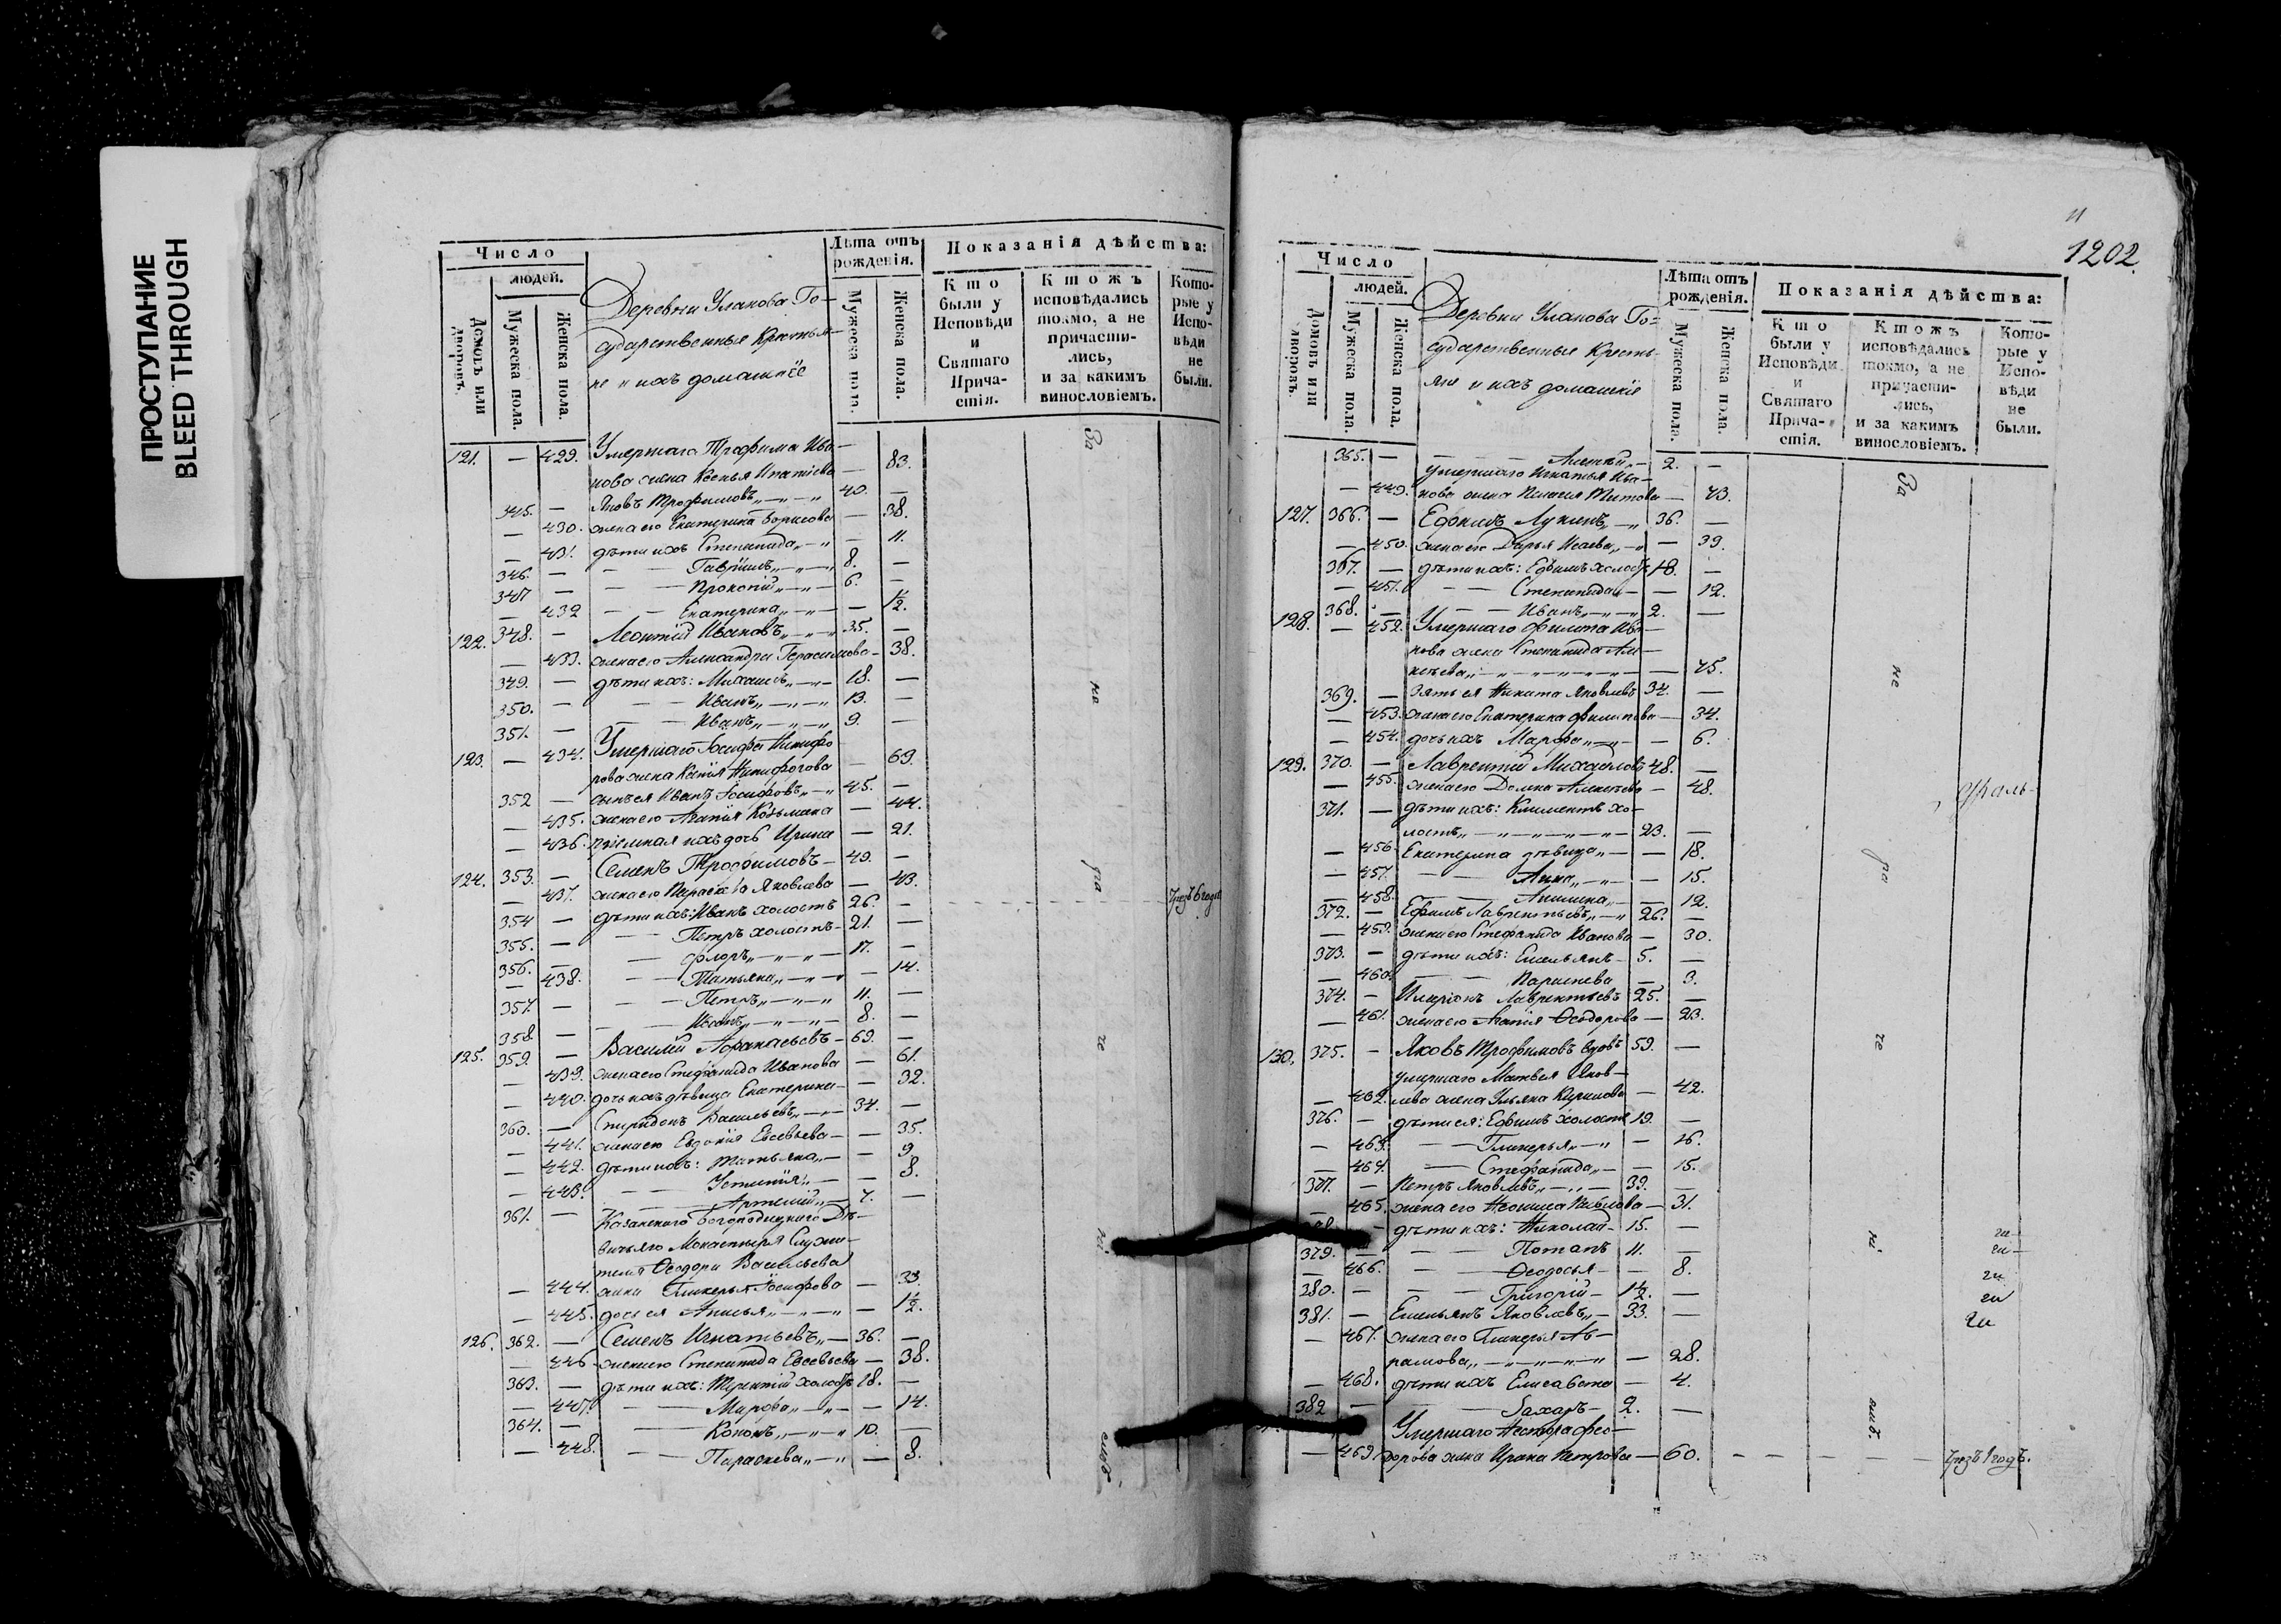 ПРОСТУПАНИЕ
BLEED THROUGH
Число
людей.
Домовъ или дворовъ.
Мужеска пола.
Женска пола.
Деревни Уланова Го-
сударственныя Крестья-
не и ихъ домашнїе
Лѣта отъ рожденія.
Мужеска пола.
Женска пола.
Показанія дѣйства:
Кто были у Исповѣди и Святаго Прича-стія.
Ктожъ исповѣдались токмо, а не причасти-лись, и за какимъ винословіемъ.
Кото-рые у Испо-вѣди не были.
121. — 429. Умершаго Трофима Ива-
нова жена Ксенья Игнатіева — 83.
345. — Яковъ Трофимовъ 40. —
— 430. жена его Екатерина Борисова — 38.
— 431. дѣти ихъ Степанида — 11.
346. — Гавріилъ 8. —
347 — Прокопій 6. —
— 432 Екатерина — 1/2.
122. 348. — Леонтій Ивановъ 35. —
— 433. жена его Александра Герасимова — 38.
349. — дѣти ихъ: Михаилъ 18. —
350. — Иванъ 13. —
351. — Иванъ 9. —
123. — 434. Умершаго Іосифа Никифо
рова жена Ксенія Никифорова — 69.
352 — сынъ ея Иванъ Іосифовъ 45. —
— 435. жена его Агапія Козьмина — 44.
— 436. пріемная ихъ дочь Ирина — 21.
124. 353. — Семенъ Трофимовъ — 49. —
— 437. жена его Параскева Яковлева — 43.
354 — дѣти ихъ: Иванъ холостъ 26. — чрезъ 6 годъ
355. — Петръ холостъ — 21. —
356. — Флоръ — 17. —
— 438. Татьяна — 14.
357. — Петръ 11. —
358. — Иванъ 8. —
125. 359. — Василій Афанасьевъ — 69. —
— 439. жена его Стефанида Иванова — 61.
— 440. дочь ихъ дѣвица Екатерина — 32.
360. — Спиридонъ Васильевъ 34. —
— 441. жена его Евдокія Евсевьева — 35.
— 442. дѣти ихъ: Татьяна — 9
— 443. Устинія — 8.
361. — Артемій 7. —
Казанскаго Богородицкаго Дѣ-
вичьяго Монастыря Служи-
теля Ѳеодора Васильева
— 444. жена Гликерья Іосифова — 33.
— 445. дочь ея Анисья — 1 1/2.
126. 362. — Семенъ Игнатьевъ — 36. —
— 446 жена его Степанида Евсевьева — 38.
363. — дѣти ихъ: Терентій холостъ 18. —
— 447. Марфа — 14.
364. — Кононъ 10. —
— 448. Параскева — 8.
За
не
ра
че
ні
емъ
1202.
Число
людей.
Домовъ или дворовъ.
Мужеска пола.
Женска пола.
Деревни Уланова Го-
сударственныя Кресть-
яне и ихъ домашніе
Лѣта отъ рожденія.
Мужеска пола.
Женска пола.
Показанія дѣйства:
Кто были у Исповѣди и Святаго Прича-стія.
Ктожъ исповѣдались токмо, а не причасти-лись, и за какимъ винословіемъ.
Кото-рые у Испо-вѣди не были.
365. — 2. —
умершаго Игнатья Ива-
— 449. нова жена Пелагея Титова — 73.
127. 366. — Ефимъ Лукинъ 36. —
— 450. жена его Дарья Исаева — 39.
367. — дѣти ихъ: Ефимъ холостъ 18. —
— 451. Степанида — 12.
368. — Иванъ 2. —
128. — 452. Умершаго Филипа Ива-
нова жена Степанида Али-
— 75.
369. — Зять ея Никита Яковлевъ 34. —
— 453. жена его Екатерина Филипова — 34.
— 454. дочь ихъ Марфа — 6.
129. 370. — Лаврентій Михайловъ 48. —
— 455. жена его Домна Алексѣева — 48.
371. — дѣти ихъ: Климентъ хо-
лостъ 23. —
— 456. Екатерина дѣвица — 18.
— 457. Анна — 15.
— 458. Акилина — 12.
372. — Ефимъ Лаврентьевъ 26. —
— 459. жена его Стефанида Иванова — 30.
373. — дѣти ихъ: Емельянъ — 5. —
— 460. Параскева — 3.
374. — Иларіонъ Лаврентьевъ 25. —
— 461. жена его Агапія Ѳеодорова — 23.
130. 375. — Яковъ Трофимовъ вдовъ 59. —
умершаго Матвея Яков-
— 462. лева жена Ульяна Кирилова — 42.
376. — дѣти ея: Ефимъ холостъ 19. —
— 463. Гликерья — 16.
— 464. Стефанида — 15.
377. — Петръ Яковлевъ 39. —
— 465. жена его Неонила Павлова — 31.
дѣти ихъ: Николай 15. —
379. — Потапъ 11. —
— 466. Ѳеодосья — 8.
380. — Григорій — 1 1/2. —
381. — Емельянъ Яковлевъ 33. —
— 467. жена его Гликерья Аб-
рамова — 28.
— 468. дѣти ихъ Елисавета — 4.
382 — Захаръ 2. —
Умершаго Нестора Фео-
— 469 дорова жена Ирина Петрова — 60. чрезъ 1 годъ.
За
не
ра
че
ні
емъ.